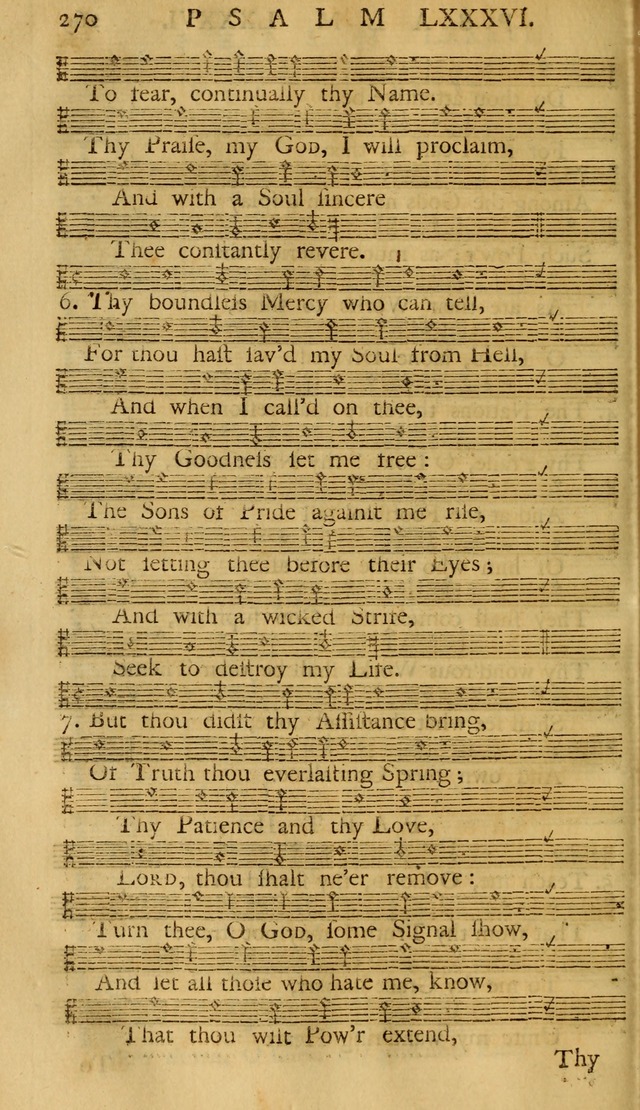 270 PSALM LXXXVI.
To fear, continually thy Name.
Thy Praiſe, my GOD, I will proclaim,
And with a Soul ſincere
Thee conſtantly revere.
6. Thy boundleſs Mercy who can tell,
For thou haſt ſav'd my Soul from Hell,
And when I call'd on thee,
Thy Goodneſs ſet me free:
The Sons of Pride againſt me riſe,
Not ſetting thee before their Eyes;
And with a wicked Strife,
Seek to deſtroy my Life.
7. But thou didſt thy Aſſiſtance bring,
Of Truth thou everlaſting Spring;
Thy Patience and thy Love,
LORD, thou ſhalt ne'er remove:
Turn thee, O GOD, ſome Signal ſhow,
And let all thoſe who hate me, know,
That thou wilt Pow'r extend,
Thy